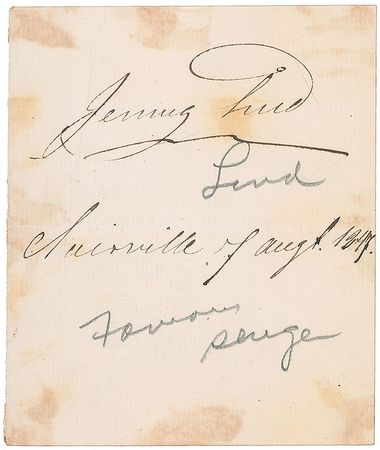 Jenny Lind
Lind
Clairville 7 augt. 1847.
Famous
Singer